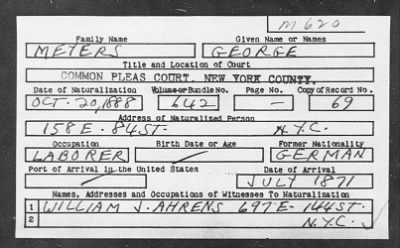 M620
Family Name Given Name or Names
MEYERS GEORGE
Title and Location of Court
COMMON PLEAS COURT, NEW YORK COUNTY.
Date of Naturalization Volume or Bundle No. Page No. Copy of Record No.
OCT. 20, 1888 642 — 69
Address of Naturalized Person
158 E. 84 ST. N.Y.C.
Occupation Birth Date or Age Former Nationality
LABORER GERMAN
Port of Arrival in the United States Date of Arrival
JULY 1871
Names, Addresses and Occupations of Witnesses To Naturalization
1 WILLIAM J. AHRENS 697 E. 144 ST.
2 N.Y.C.